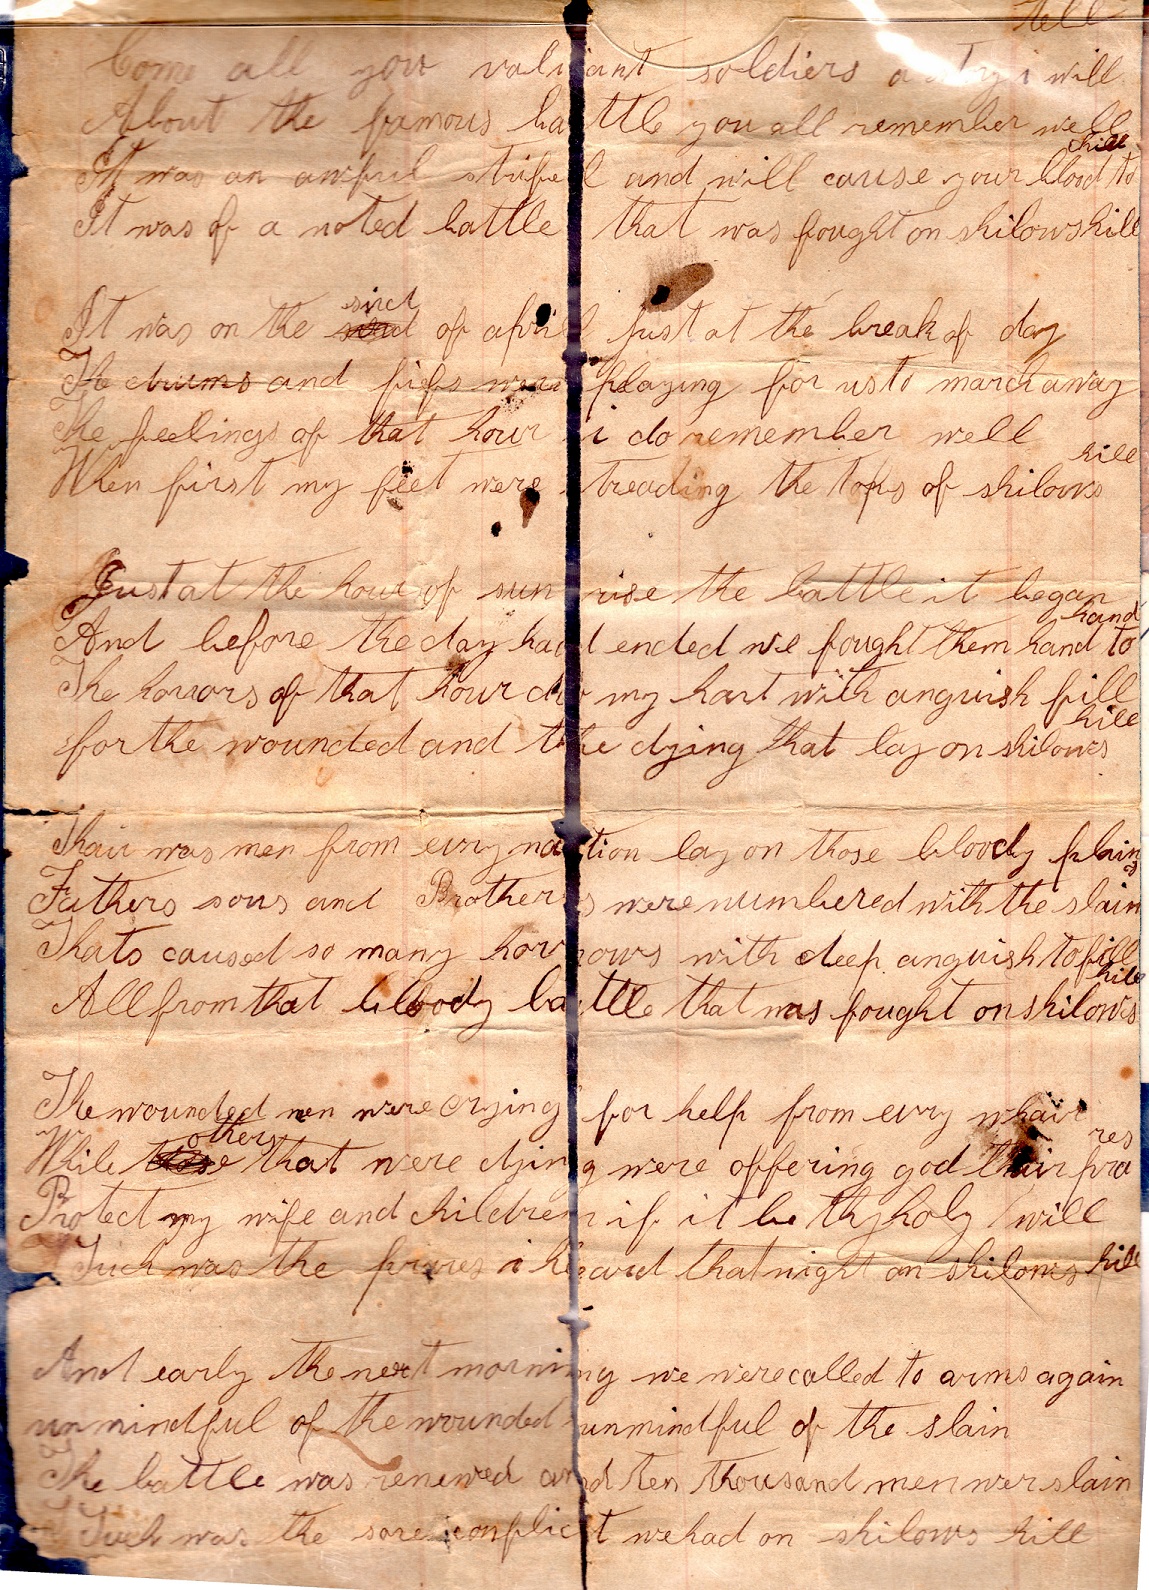 Come all you valiant soldiers a story i will tell
About the famous battle you all remember well
It was an awful strife and will cause your blood to chill
It was of a noted battle that was fought on shilows hill
It was on the sixt of april just at the break of day
The drums and fifs were playing for us to march away
The feelings of that hour i do remember well
When first my feet were treading the tops of shilows hill
Just at the hour of sun rise the battle it began
And before the day had ended we fought them hand to hand
The horrors of that hour did my hart with anguish fill
for the wounded and the dying that lay on shilows hill
Thair was men from evry nation lay on those bloody plains
Fathers sons and Brothers were numbered with the slain
Thats caused so many homes with deep anguish to fill
All from that bloody battle that was fought on shilows hill
The wounded men were crying for help from evry whair
While others that were dying were offering god thair prares
Protect my wife and children if it be thy holy will
Such was the prares i heard that night on shilows hill
And early the next morning we were called to arms again
unmindful of the wounded unmindful of the slain
The battle was renewed and ten thousand men wer slain
Such was the sore conflict we had on shilows hill